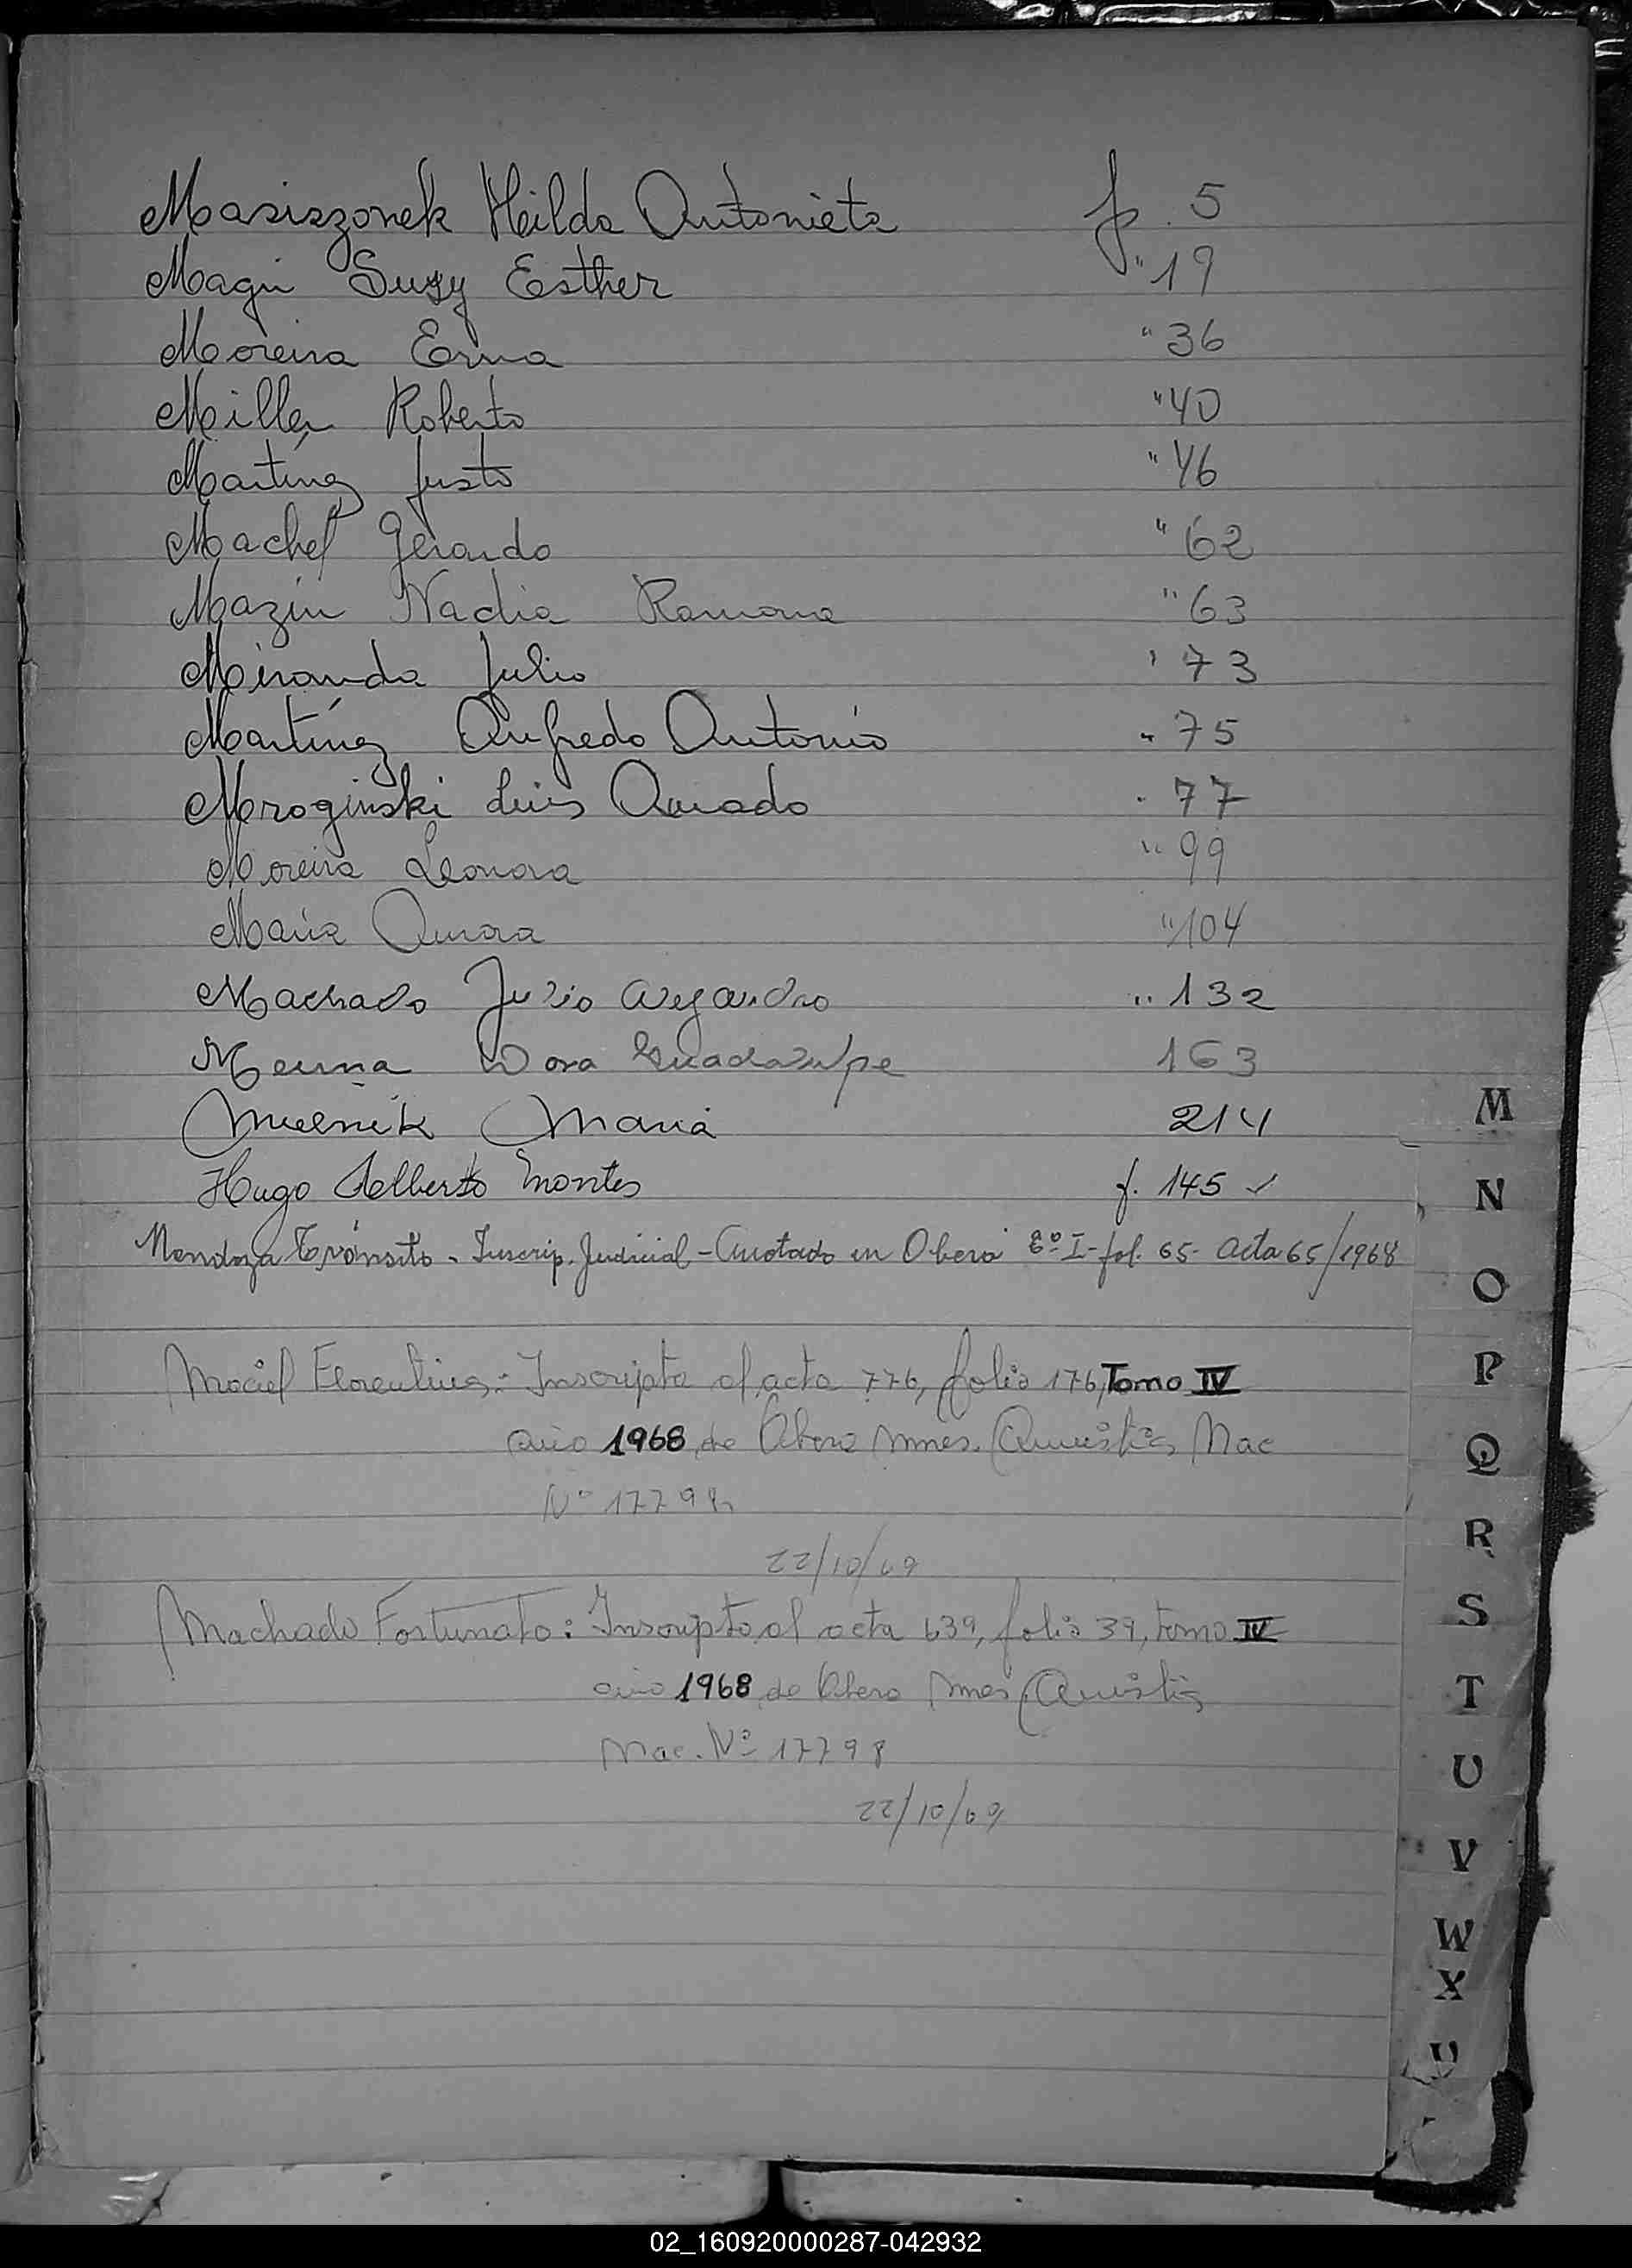 Masiszonek Hilda Antonieta f. 5
Magri Susy Esther " 19
Moreira Erma " 36
Miller Roberto " 40
Martínez Justo " 46
Machel Gerardo " 62
Mazin Nadia Ramona " 63
Miranda Julio " 73
Martínez Anfredo Antonio " 75
Mroginski Luis Amado " 77
Moreira Leonora " 99
María Aurora " 104
Machado Julio Alejandro " 132
Dora Guadalupe 163
Melnik María 214
Hugo Adelberto Montes f. 145 ✓
Mendoza Tránsito - Inscrip. Judicial - Anotado en Obera I - fol. 65 - Acta 65/1968
Maciel Florentina: Inscripta al acta 776, folio 176, Tomo IV
año 1968, de Obera Mnes. Amnistía, Mac
Nº 17798
22/10/69
Machado Fortunato: Inscripto al acta 639, folio 39, tomo IV
año 1968, de Obera Mnes. Amnistía
Mac. Nº 17798
22/10/69
M
N
O
P
Q
R
S
T
U
V
W
X
02_160920000287-042932